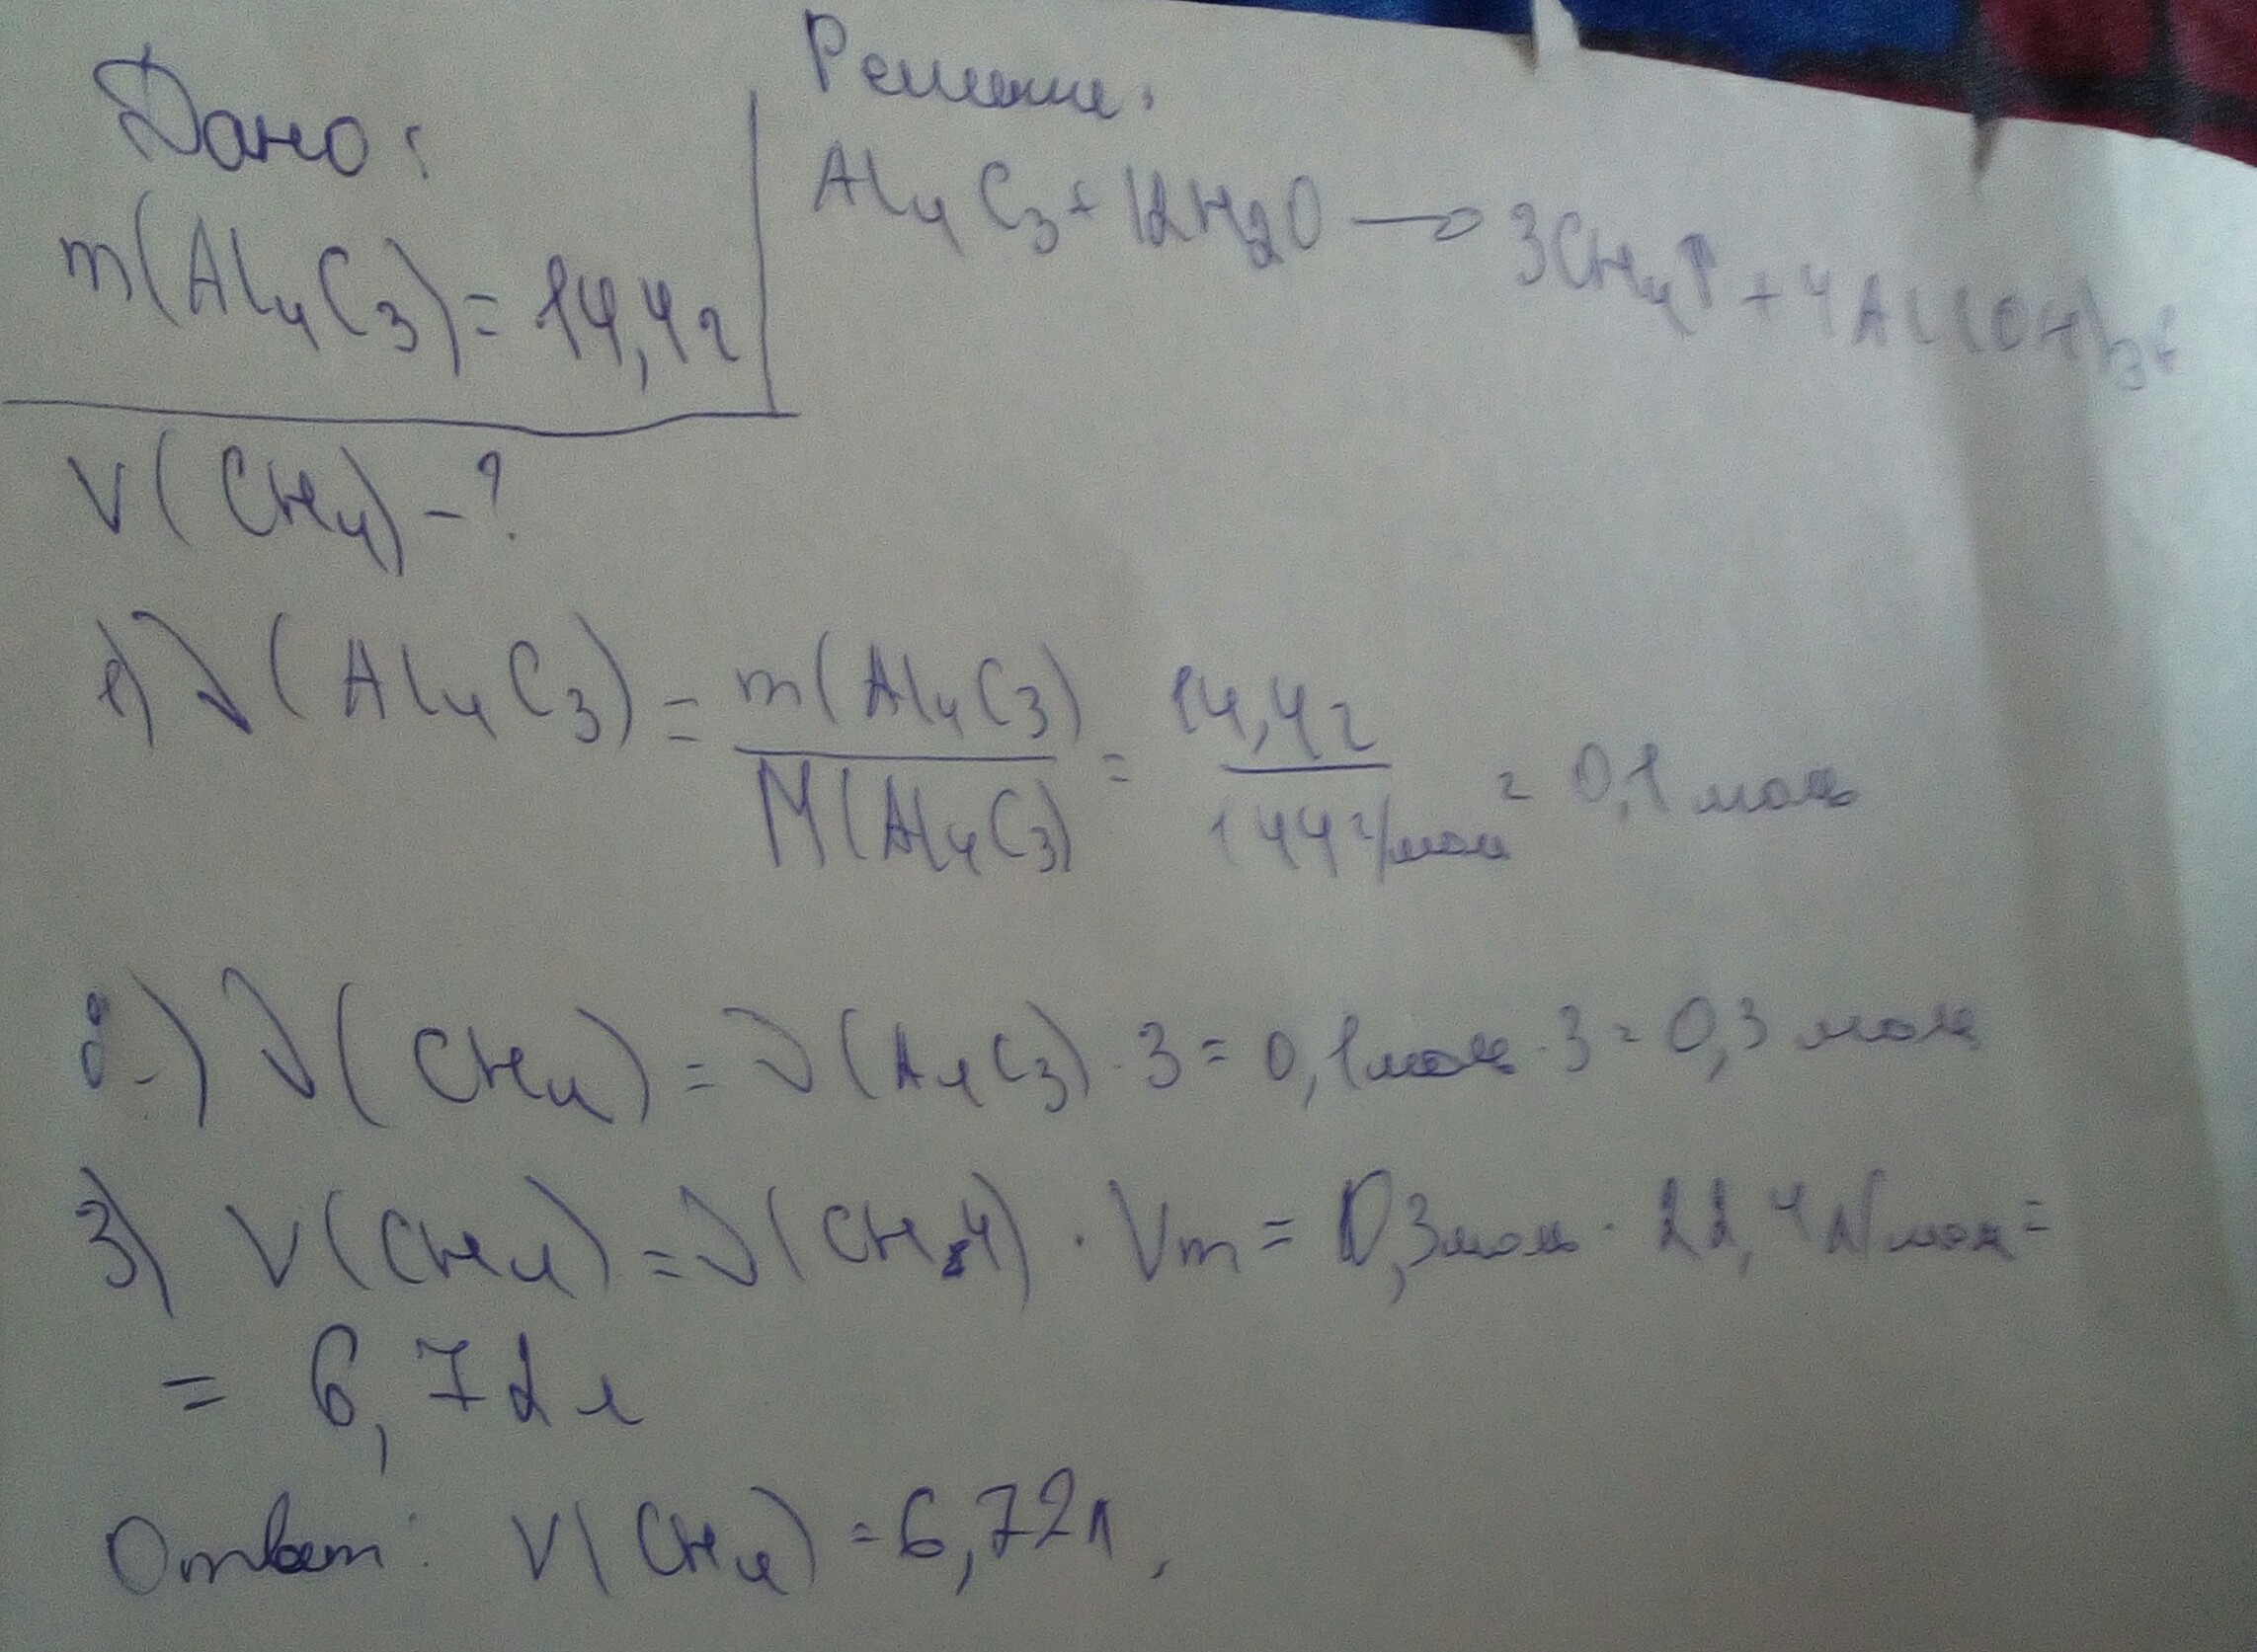 Дано:
m(Al₄C₃) = 14,4г
V(CH₄) - ?
Решение:
Al₄C₃ + 12H₂O → 3CH₄↑ + 4Al(OH)₃↓
1) ν(Al₄C₃) = m(Al₄C₃) / M(Al₄C₃) = 14,4г / 144г/моль = 0,1 моль
2) ν(CH₄) = ν(Al₄C₃) · 3 = 0,1моль · 3 = 0,3 моль
3) V(CH₄) = ν(CH4) · Vm = 0,3моль · 22,4л/моль =
= 6,72л
Ответ: V(CH₄) = 6,72л.